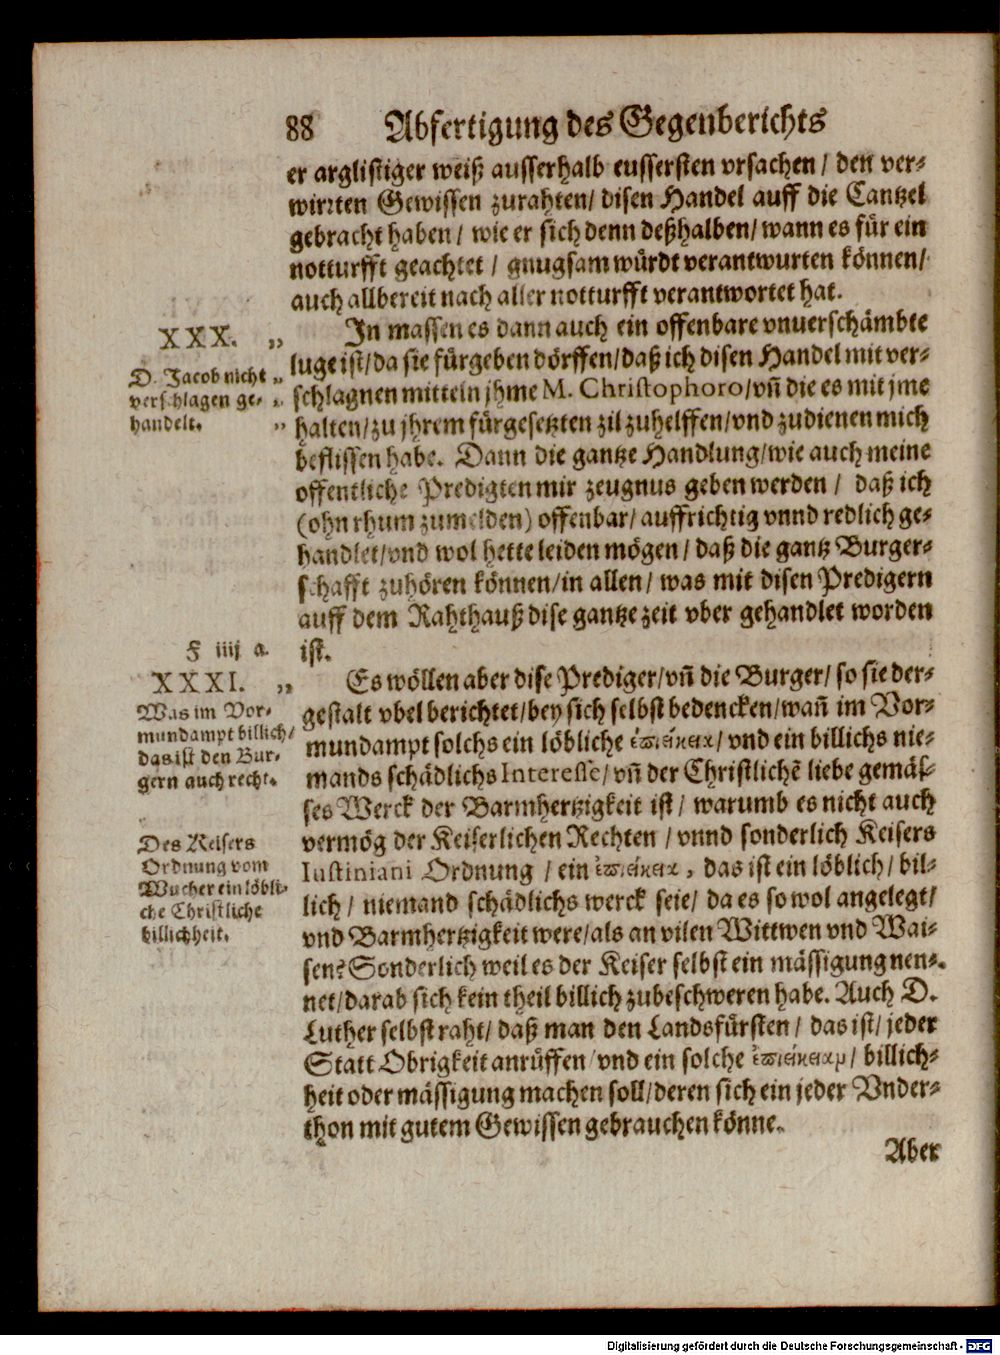 88 Abfertigung des Gegenberichts
er arglistiger weiß ausserhalb eussersten vrsachen / den ver-
wirrten Gewissen zurahten / disen Handel auff die Cantzel
gebracht haben / wie er sich denn deßhalben / wann es für ein
notturfft geachtet / gnugsam würdt verantwurten können /
auch allbereit nach aller notturfft verantwortet hat.
XXX. „
D. Jacob nicht „
verschlagen ge- „
handelt. „
In massen es dann auch ein offenbare vnuerschämbte
luge ist / da sie fürgeben dörffen / daß ich disen Handel mit ver-
schlagnen mitteln jhme M. Christophoro / vñ die es mit jme
halten / zu jhrem fürgesetzten zil zuhelffen / vnd zudienen mich
beflissen habe. Dann die gantze Handlung / wie auch meine
offentliche Predigten mir zeugnus geben werden / daß ich
(ohn rhum zumelden) offenbar / auffrichtig vnnd redlich ge-
handlet / vnd wol hette leiden mögen / daß die gantz Burger-
schafft zuhören können / in allen / was mit disen Predigern
auff dem Rahthauß dise gantze zeit vber gehandlet worden
ist.
F iiij a.
XXXI. „
Was im Vor-
mundampt billich /
das ist den Bur-
gern auch recht.
Es wöllen aber dise Prediger / vñ die Burger / so sie der-
gestalt vbel berichtet / bey sich selbst bedencken / wañ im Vor-
mundampt solchs ein löbliche ἐπιείκεια / vnd ein billichs nie-
mands schädlichs Interesse / vñ der Christlichẽ liebe gemäs-
ses Werck der Barmhertzigkeit ist / warumb es nicht auch
Des Keisers
Ordnung vom
Wucher ein löbli-
che Christliche
billichheit.
vermög der Keiserlichen Rechten / vnnd sonderlich Keisers
Iustiniani Ordnung / ein ἐπιείκεια, das ist ein löblich / bil-
lich / niemand schädlichs werck seie / da es so wol angelegt /
vnd Barmhertzigkeit were / als an vilen Wittwen vnd Wai-
sen? Sonderlich weil es der Keiser selbst ein mässigung nen-
net / darab sich kein theil billich zubeschweren habe. Auch D.
Luther selbst raht / daß man den Landsfürsten / das ist / jeder
Statt Obrigkeit anrüffen / vnd ein solche ἐπιείκειαν / billich-
heit oder mässigung machen soll / deren sich ein jeder Vnder-
thon mit gutem Gewissen gebrauchen könne.
Aber
Digitalisierung gefördert durch die Deutsche Forschungsgemeinschaft - DFG